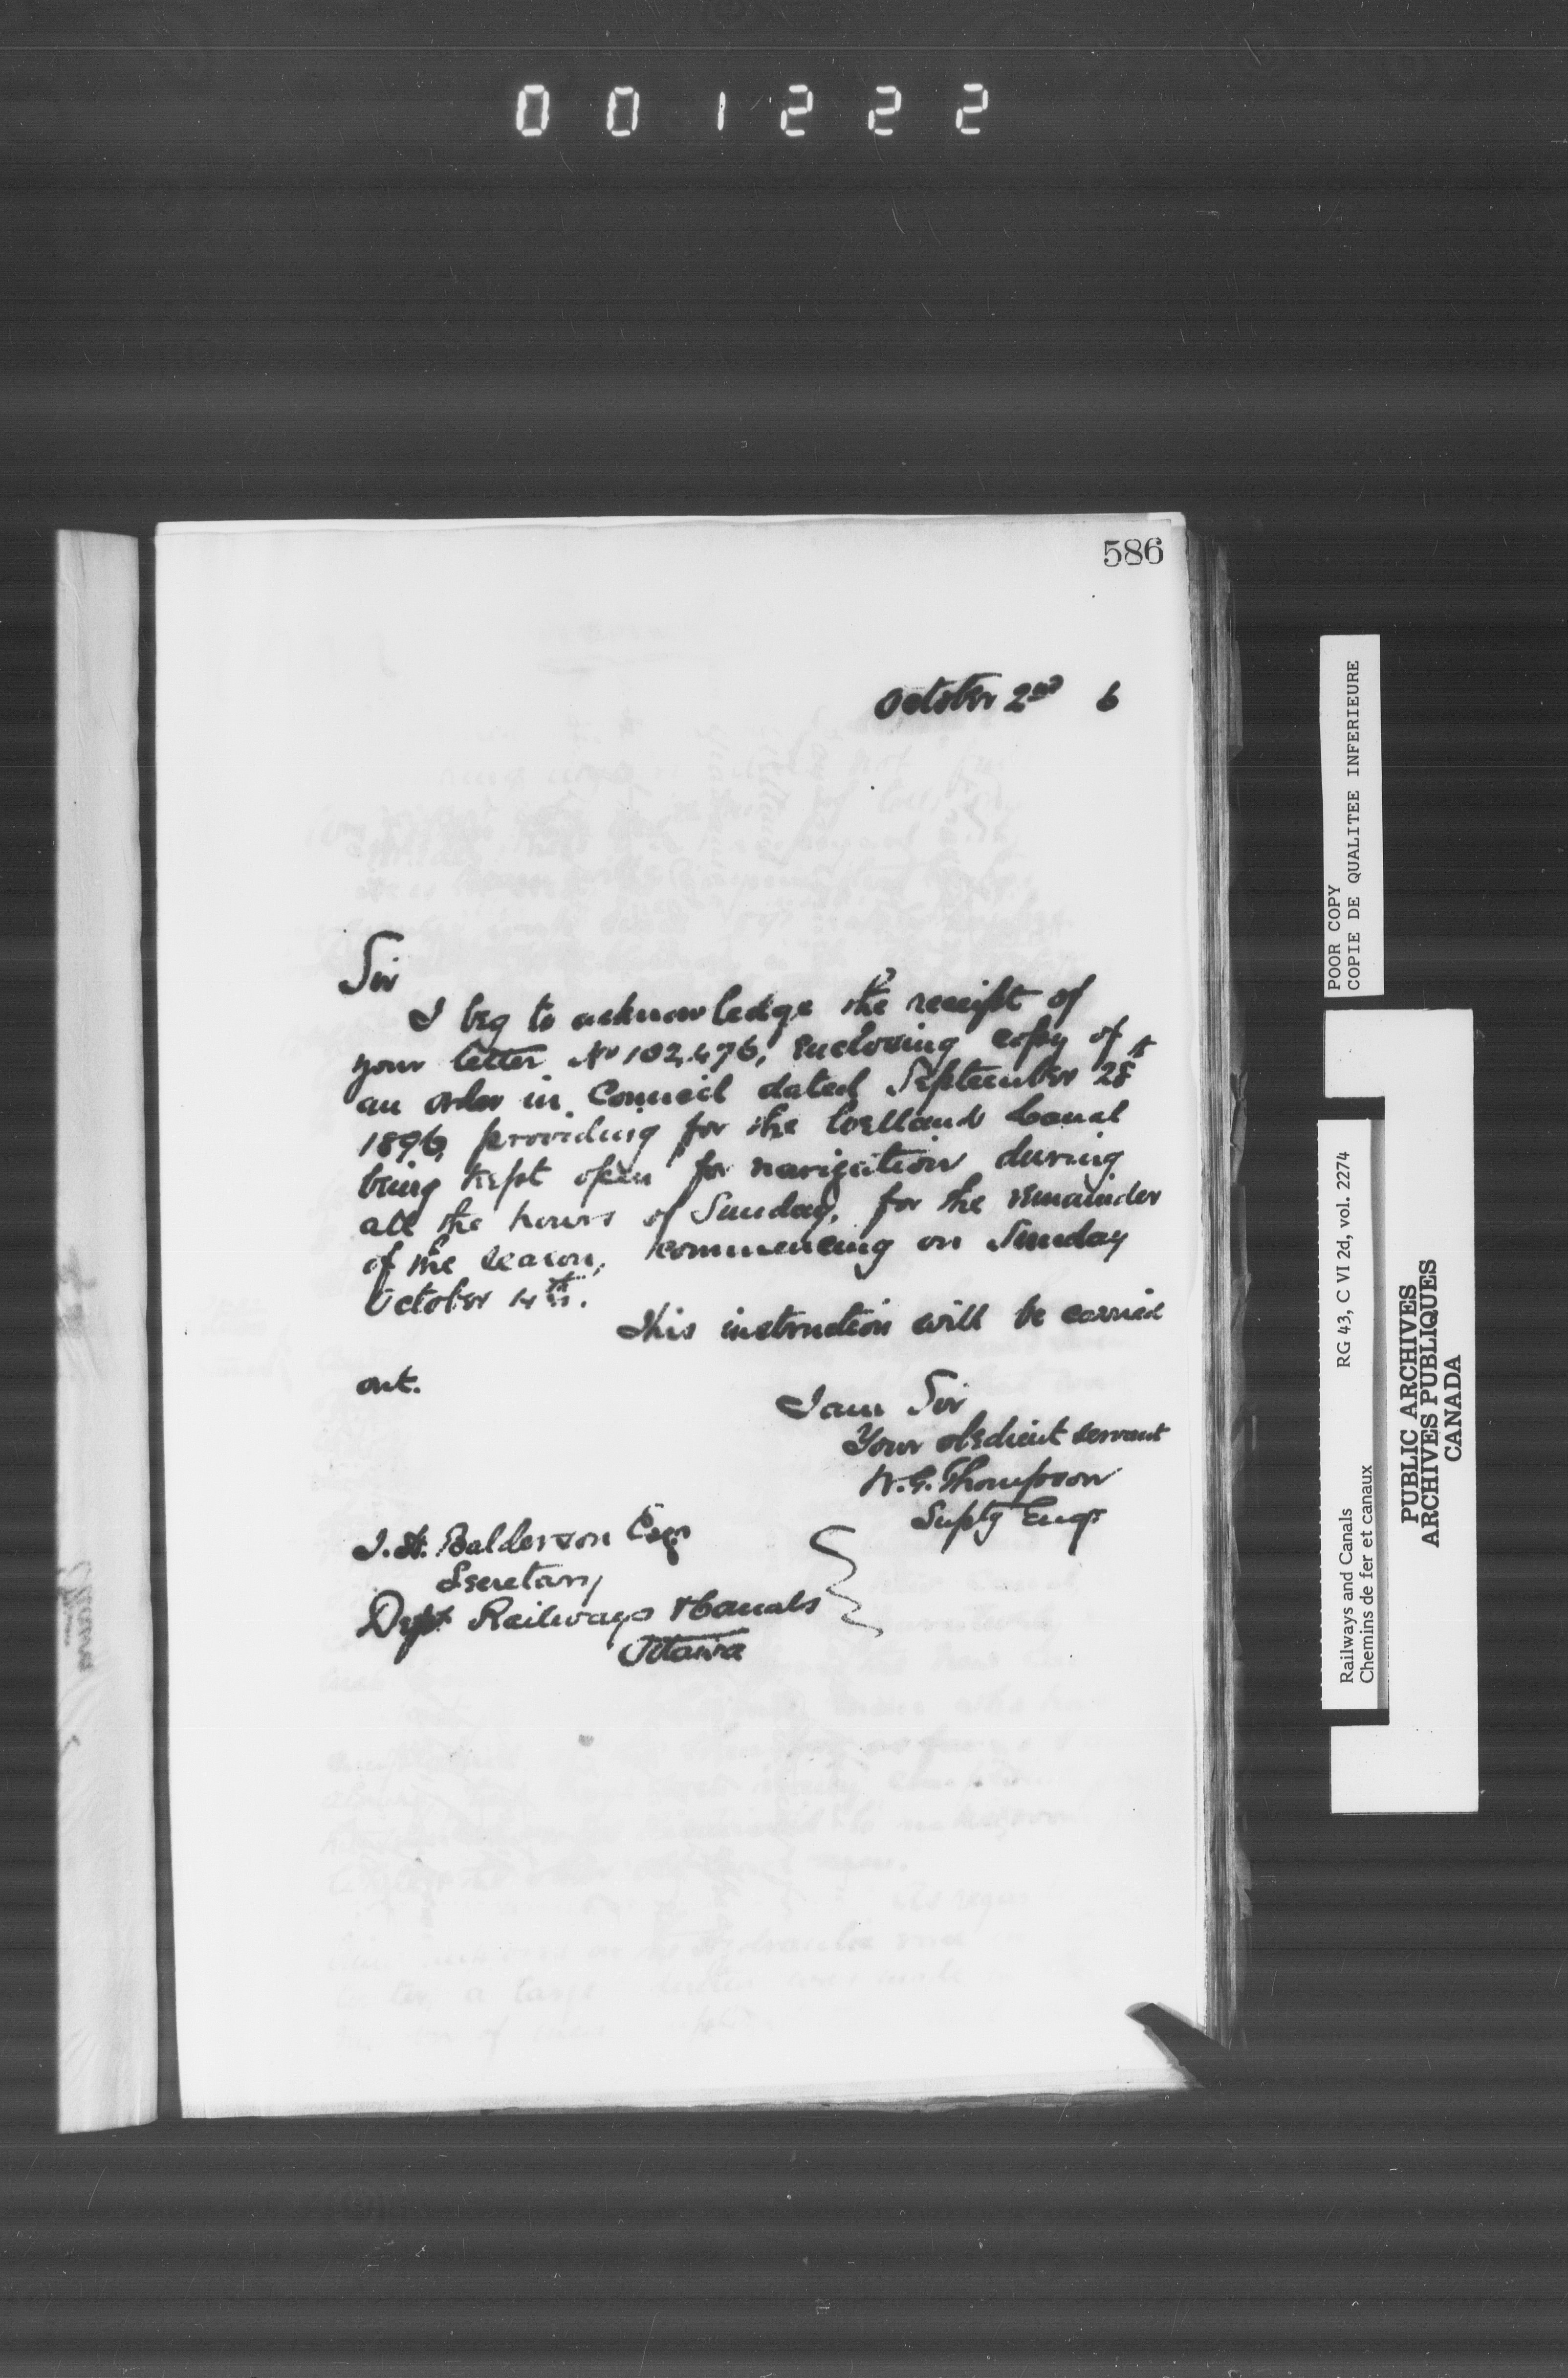 001222
586
October 2nd 6
Sir
I beg to acknowledge the receipt of
your letter No 102,476, enclosing copy of
an order in Council dated September 28th
1896, providing for the Welland Canal
being kept open for navigation during
all the hours of Sunday, for the remainder
of the season, commencing on Sunday
October 4th.
This instruction will be carried
out.
I am Sir
Your obedient servant
W.G. Thompson
Suptg Engr
J.H. Balderson Esqr
Secretary
Dept Railways & Canals
Ottawa
POOR COPY
COPIE DE QUALITEE INFERIEURE
Railways and Canals RG 43, C VI 2d, vol. 2274
Chemins de fer et canaux
PUBLIC ARCHIVES
ARCHIVES PUBLIQUES
CANADA